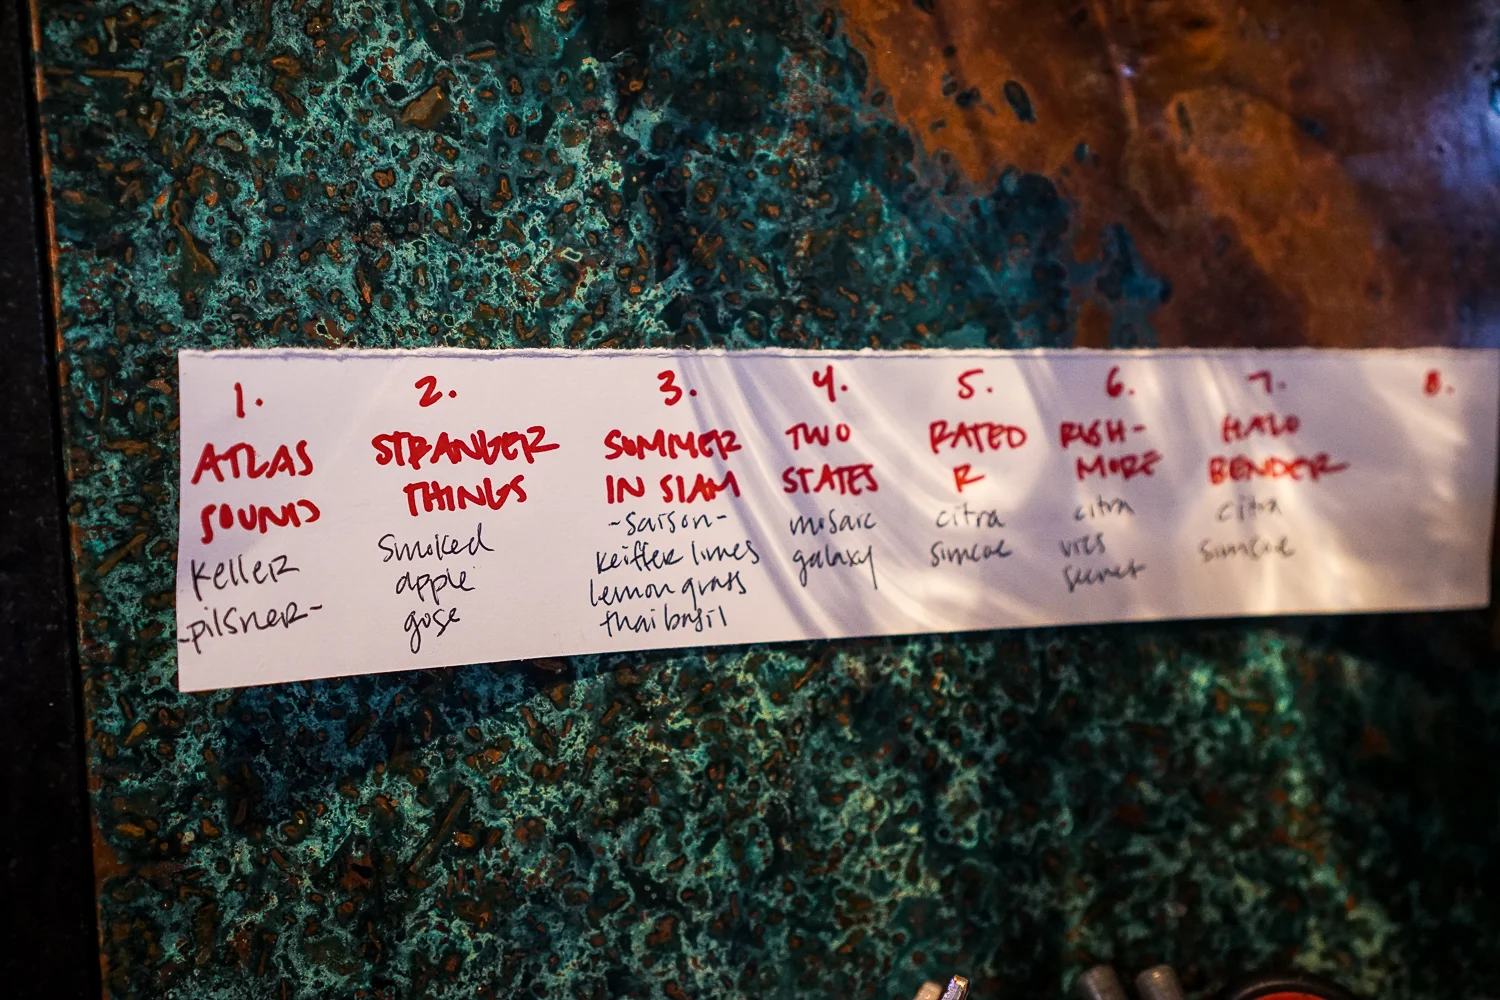 1.
ATLAS
SOUND
Keller
-pilsner-
2.
STRANGER
THINGS
Smoked
apple
gose
3.
SUMMER
IN SIAM
-saison-
Keiffer limes
lemon grass
thai basil
4.
TWO
STATES
mosaic
galaxy
5.
RATED
R
citra
simcoe
6.
RISH-
MORE
citra
vics
secret
7.
HALO
BENDER
citra
simcoe
8.